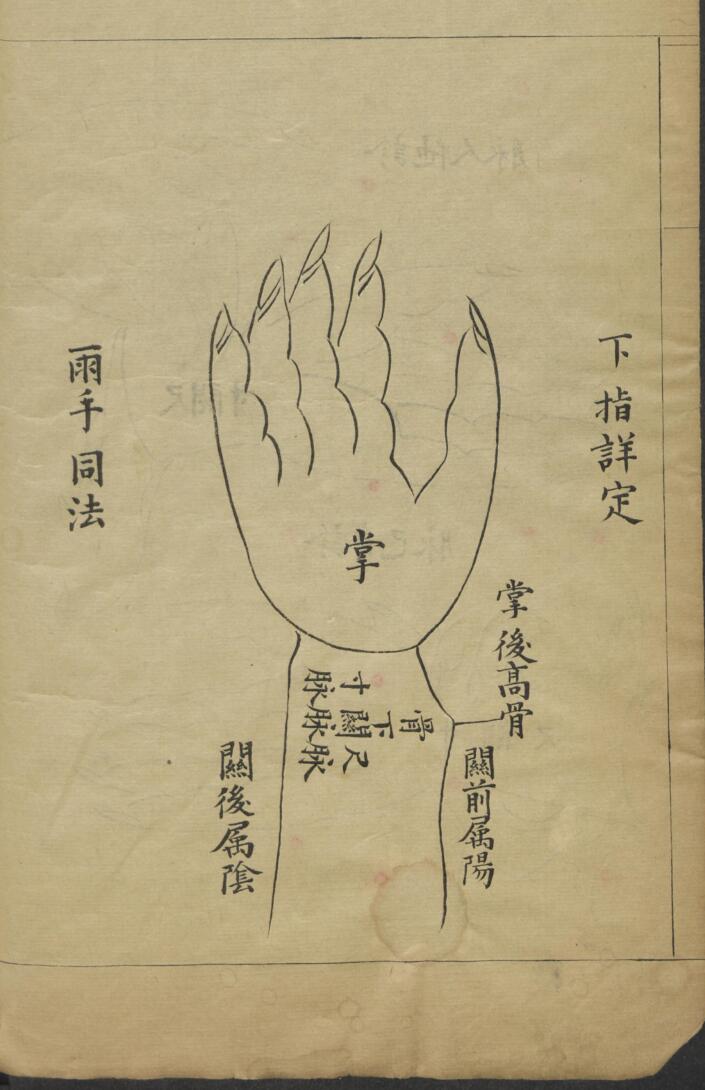 下指詳定
掌後高骨
關前属陽
掌
骨下
寸脉
關脉
尺脉
關後属陰
兩手同法